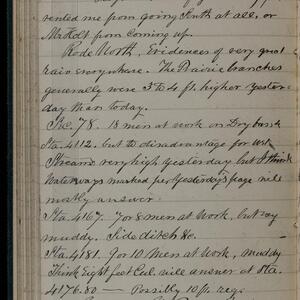 vented me from going South at all, or
Mr Holt from coming up.
Rode North, Evidences of very great
rain everywhere. The Prairie branches
generally were 3 to 4 ft. higher yester-
day than today.
Sec 78. 18 men at work on Dry bank
Sta. 4112. but to disadvantage for wet
Streams very high yesterday but I think
Waterways marked per Yesterdays page will
mostly answer
Sta. 4167. 7 or 8 men at Work, but very
muddy. Side ditch &c.
Sta. 4181. 9 or 10 Men at Work, muddy
Think Eight feet Cul. will answer at Sta.
4176.80 — Possibly 10 ft. reqd